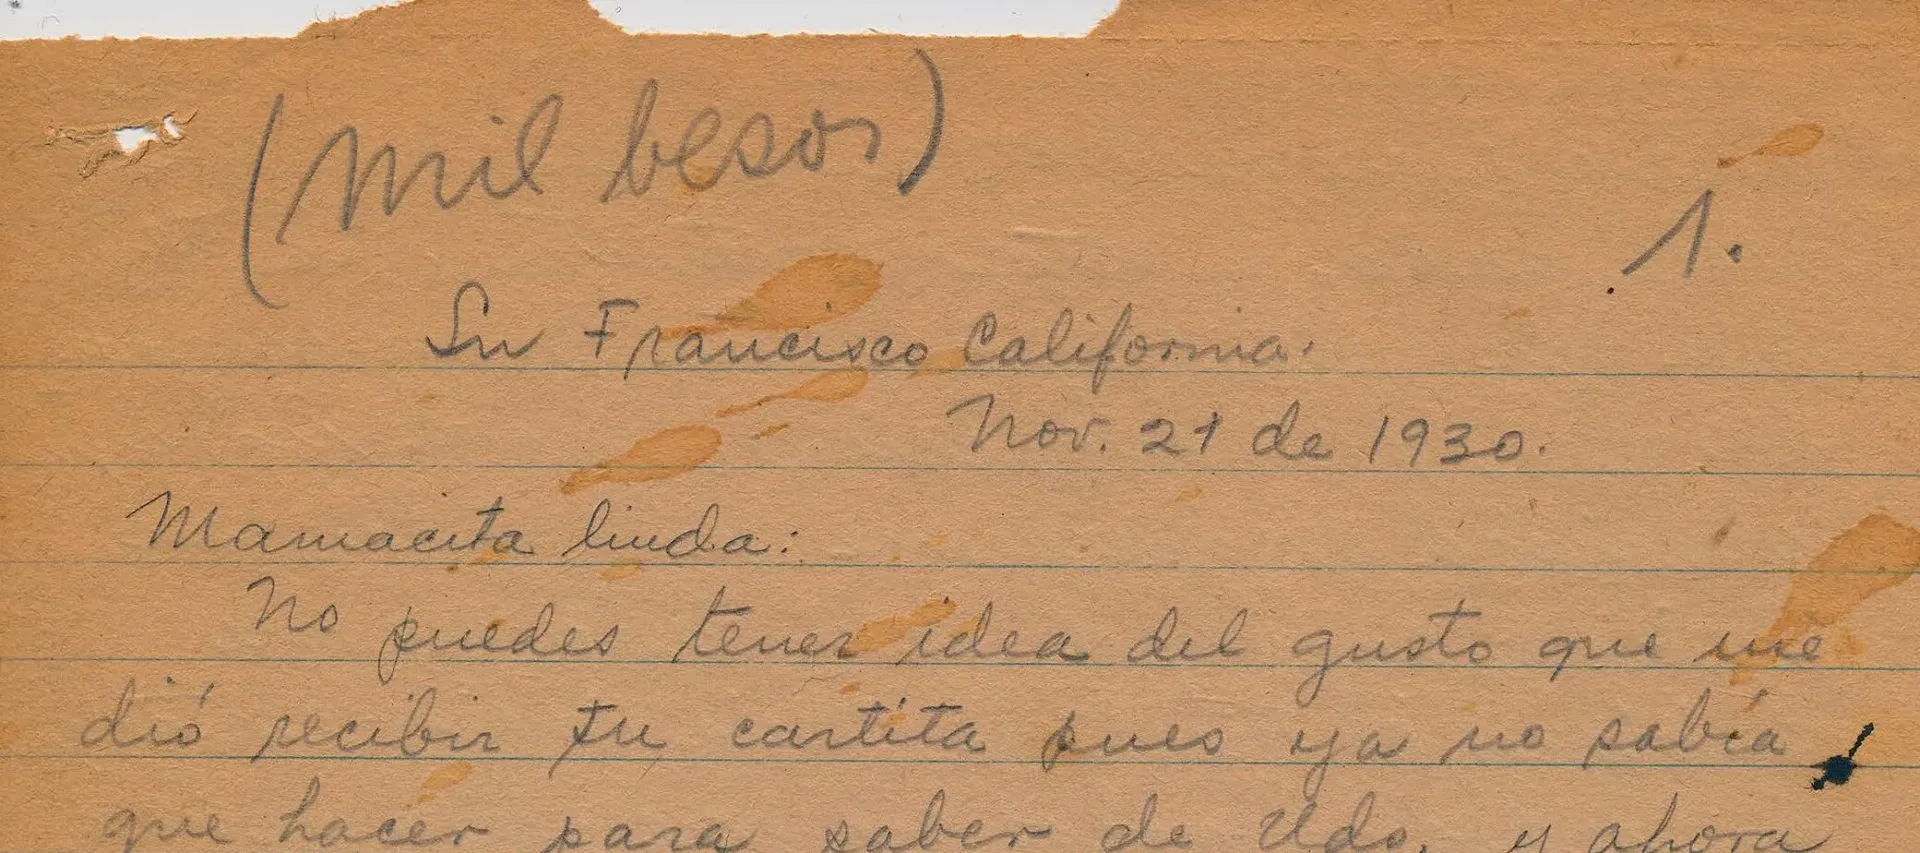 (Mil besos)
1.
Sn Francisco California.
Nov. 21 de 1930.
Mamacita linda:
No puedes tener idea del gusto que me
dió recibir tu cartita pues ya no sabía
que hacer para saber de Uds. y ahora